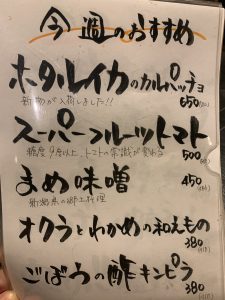 今週のおすすめ
ホタルイカのカルパッチョ
新物が入荷しました!!
650
スーパーフルーツトマト
糖度9度以上、トマトの常識が変わる
500
まめ味噌
450
新潟県の郷土料理
オクラとわかめの和えもの
380
ごぼうの酢キンピラ
380